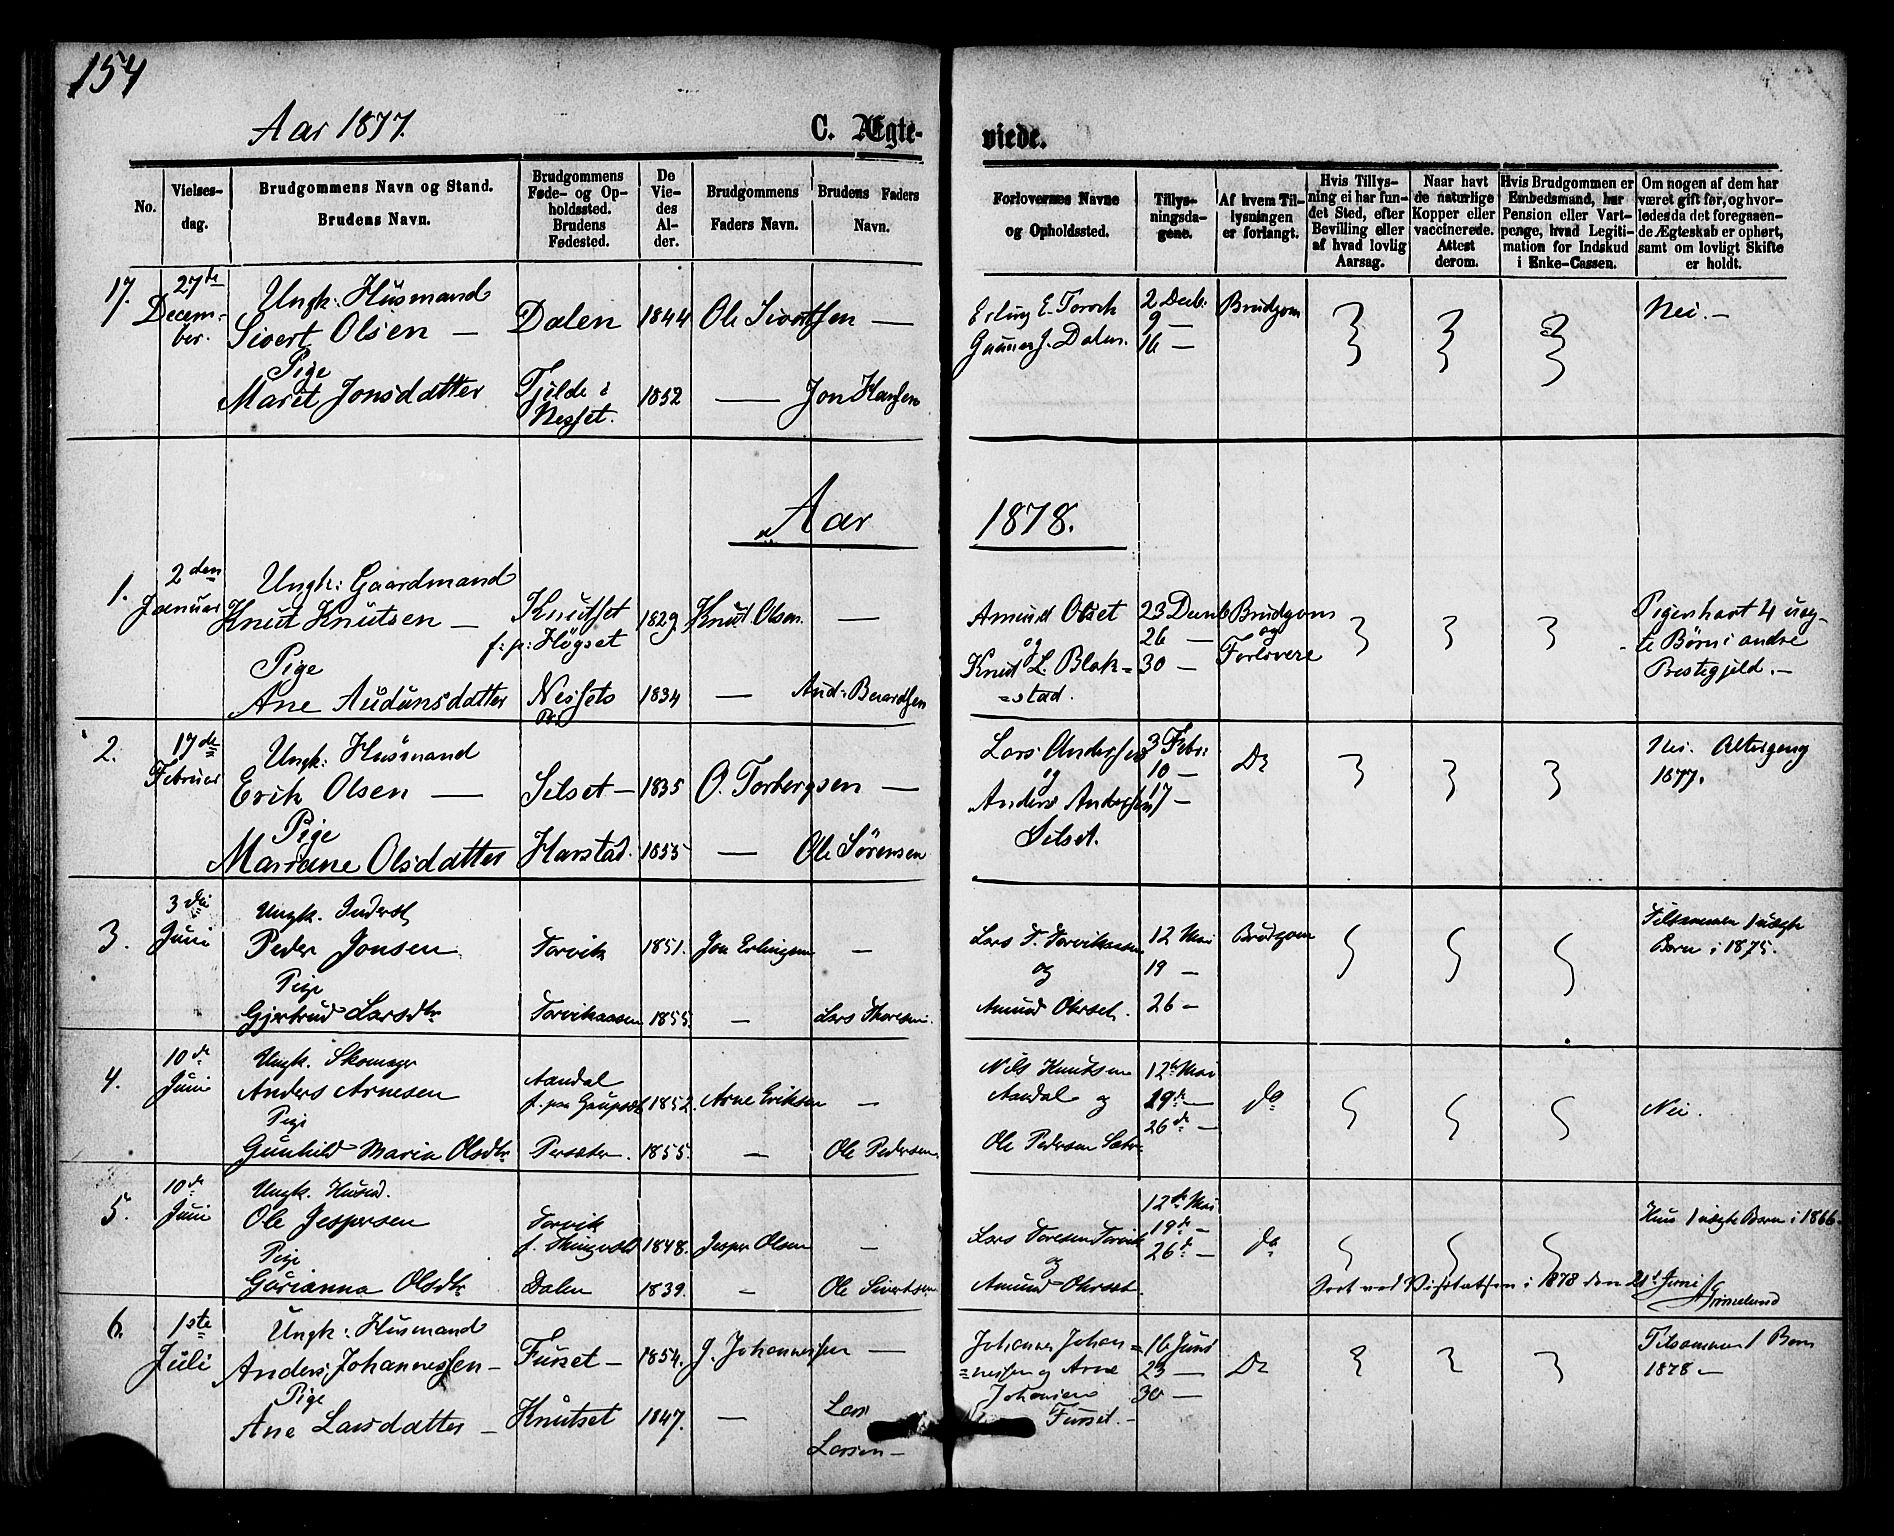 154
Aar 1877.
C. Ægte-
viede.
No.
Vielses-
dag.
Brudgommens Navn og Stand.
Brudens Navn.
Brudgommens
Føde- og Op-
holdssted.
Brudens
Fødested.
De
Vie-
des
Al-
der.
Brudgommens
Faders Navn.
Brudens Faders
Navn.
Forlovernes Navne
og Opholdssted.
Tillys-
ningsda-
gene.
Af hvem Til-
lysningen
er forlangt.
Hvis Tillys-
ning ei har fun-
det Sted, efter
Bevilling eller
af hvad lovlig
Aarsag.
Naar havt
de naturlige
Kopper eller
vaccinerede.
Attest
derom.
Hvis Brudgommen er
Embedsmand, har
Pension eller Vart-
penge, hvad Legiti-
mation for Indskud
i Enke-Cassen.
Om nogen af dem har
været gift før, og hvor-
ledes da det foregaaen-
de Ægteskab er ophørt,
samt om lovligt Skifte
er holdt.
17. 27de Decem-
ber.
Ungk: Husmand
Sivert Olsen — Dalen 1844 Ole Sivertsen —
Pige
Marit Jonsdatter Tjelde i
Nesset. 1852 — Jon Hansen
Erling E. Torvik 2 Decb: Brudgom Nei. —
9 —
Gunnar J. Dalen. 16 —
Aar 1878.
1. 2den
Januar
Ungk: Gaardmand
Knut Knutsen — Knutset
f: p: Högset 1829 Knut Olsen —
Pige
Ane Audunsdatter Nessets
Pr. 1834 — Aud: Berardsen
Amund Olset 23 Decmb Brudgom
og 26 — og
Knud L. Blak= 30 — Forlovere
=stad.
Pigen havt 4 uæg-
te Børn i andre
Prestigjeld. —
2. 17de
Februar
Ungk: Husmand
Erik Olsen — Silset — 1835 O. Torbergsen —
Pige
Mariane Olsdatter Harstad. 1855 — Ole Sørensen
Lars Andersen 3 Febr: Do
og 10 —
Anders Andersen 17 —
Silset.
Nei. Altergang
1877.
3. 3die
Juni
Ungk. Inderst
Peder Jonsen Torvik 1851. Jon Erlingsen —
Pige
Gjertrud Larsdtr Torvikaasen 1855. — Lars Thoresen.
Lars T. Torvikaasen 12 Mai Brudgom
og 19 —
Amund Ohrset. 26 —
Tilsammen 1 uægte
Barn i 1875.
4. 10de
Juni
Ungk. Skomager
Anders Arnesen Aandal
f. paa Gaupset 1852. Arne Eriksen —
Pige
Gunhild Maria Olsdtr Persæter. 1855. — Ole Pedersen.
Nils Knutsen 12te Mai
Aandal og 19de — do
Ole Pedersen Sæter 26de —
Nei.
5. 10de
Juni
Ungk. Husmd.
Ole Jespersen Torvik
f. Thingvold 1848. Jesper Olsen —
Pige
Gurianna Olsdtr Dalen 1839. — Ole Sivertsen
12te Mai
Lars Toresen Torvik 19de —
og 26de — do
Amund Ohrset.
Hun 1 uægte Barn i 1866.
Seet ved Visitatsen i 1878 den 21de Juni
Grimelund
6. 1ste
Juli
Ungk: Husmand
Anders Johannessen — Furset — 1854. J. Johannessen —
Pige
Ane Larsdatter — Knutset 1847. — Lars
Larsen —
Johannes Johan= 16 Juni
=nessen og Arne 23 — Do
Johansen 30 —
Furset. —
Tilsammen 1 Barn
1878 —